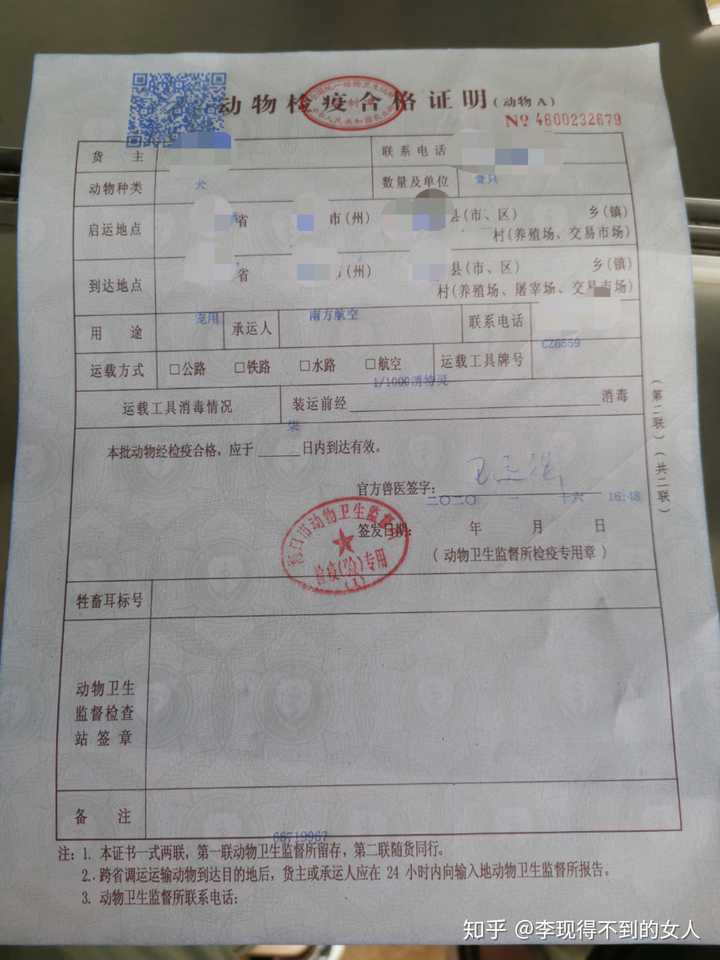 动物检疫合格证明(动物A)
№ 4600232679
货 主
联系电话
动物种类 犬 数量及单位 壹只
启运地点 省 市(州) 县(市、区) 乡(镇)
村(养殖场、交易市场)
到达地点 省 (州) 县(市、区) 乡(镇)
村(养殖场、屠宰场、交易市场)
用 途 宠用 承运人 南方航空 联系电话
运载方式 □公路 □铁路 □水路 □航空 运载工具牌号
运载工具消毒情况 装运前经 1/1000消特灵 消毒
本批动物经检疫合格,应于 柒 日内到达有效。
官方兽医签字:
二〇二〇 一 十六 16:48
签发日期: 年 月 日
(动物卫生监督所检疫专用章)
动物卫生监督
检疫(
)专用
(1)
(第二联)(共二联)
牲畜耳标号
动物卫生
监督检查
站签章
备 注
66719967
注:1. 本证书一式两联,第一联动物卫生监督所留存,第二联随货同行。
2. 跨省调运运输动物到达目的地后,货主或承运人应在 24 小时内向输入地动物卫生监督所报告。
3. 动物卫生监督所联系电话:
知乎 @李现得不到的女人